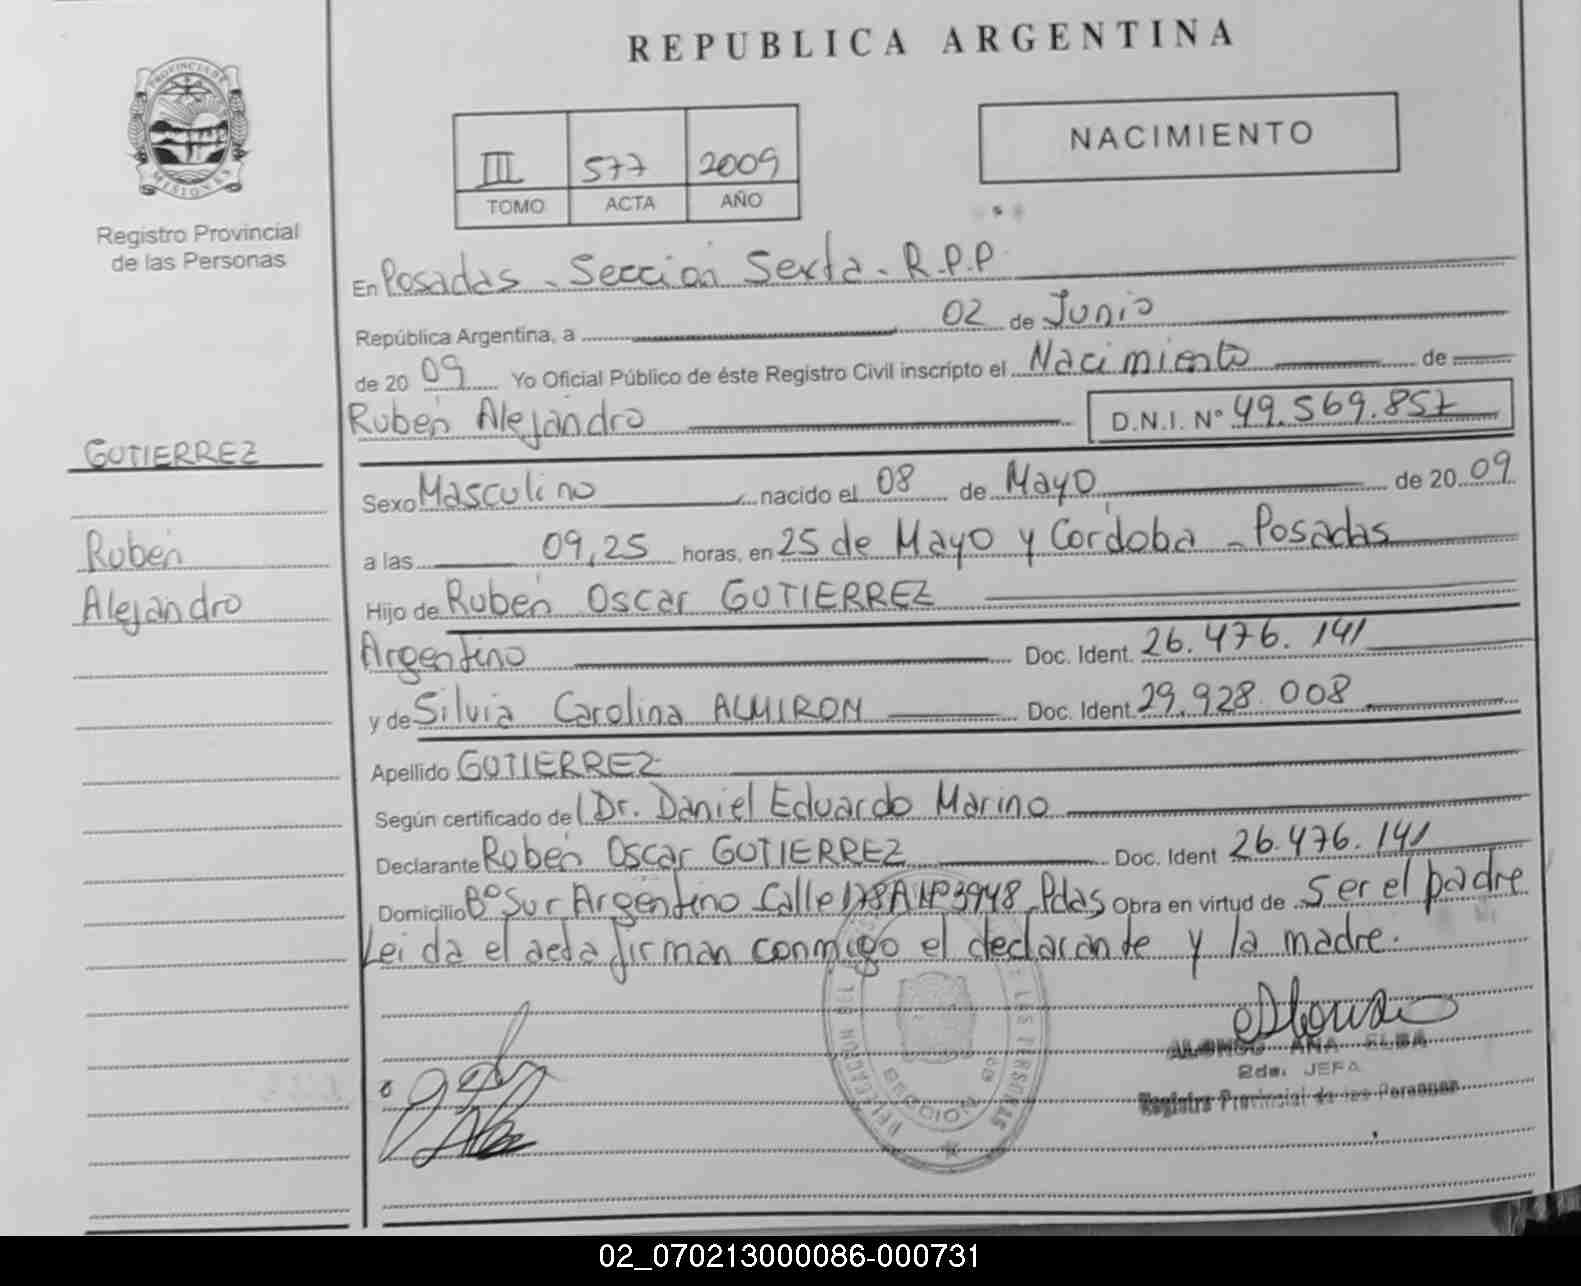 REPUBLICA ARGENTINA
PROVINCIA DE
MISIONES
Registro Provincial
de las Personas
III 577 2009
TOMO ACTA AÑO
NACIMIENTO
En Posadas - Sección Sexta - R.P.P.
República Argentina, a 02 de Junio
de 2009 Yo Oficial Público de éste Registro Civil inscripto el Nacimiento de
Rubén Alejandro D.N.I. Nº 49.569.857
GUTIERREZ
Sexo Masculino nacido el 08 de Mayo de 2009
Rubén
a las 09,25 horas, en 25 de Mayo y Córdoba - Posadas
Alejandro
Hijo de Rubén Oscar GUTIERREZ
Argentino Doc. Ident. 26.476.141
y de Silvia Carolina ALMIRON Doc. Ident. 29.928.008
Apellido GUTIERREZ
Según certificado de Dr. Daniel Eduardo Marino
Declarante Rubén Oscar GUTIERREZ Doc. Ident 26.476.141
Domicilio Bº Sur Argentino Calle 178A Nº 3948 Pdas Obra en virtud de Ser el padre
Leida el acta firman conmigo el declarante y la madre.
ALONSO ANA ELBA
2da. JEFA
Registro Provincial de las Personas
02_070213000086-000731